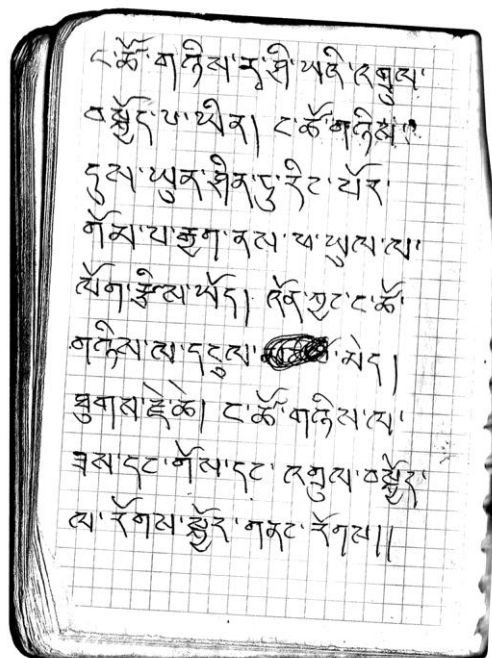 ང་ཚོ་གཉིས་ འགྲུལ་
བསྐྱོད་པ་ཡིན། ང་ཚོ་གཉིས་
དུས་ཡུན་ཤིན་ཏུ་རིང་པོར་
གོམ་པ་རྒྱག་ནས་ཕ་ཡུལ་ལ་
ལོག་རྩིས་ཡོད། འོན་ཀྱང་ང་ཚོ་
གཉིས་ལ་དངུལ་ མེད།
ཐུགས་རྗེ་ཆེ། ང་ཚོ་གཉིས་ལ་
ཟས་དང་གོས་དང་འགྲུལ་བསྐྱོད་
ལ་རོགས་སྐྱོར་གནང་རོགས།།